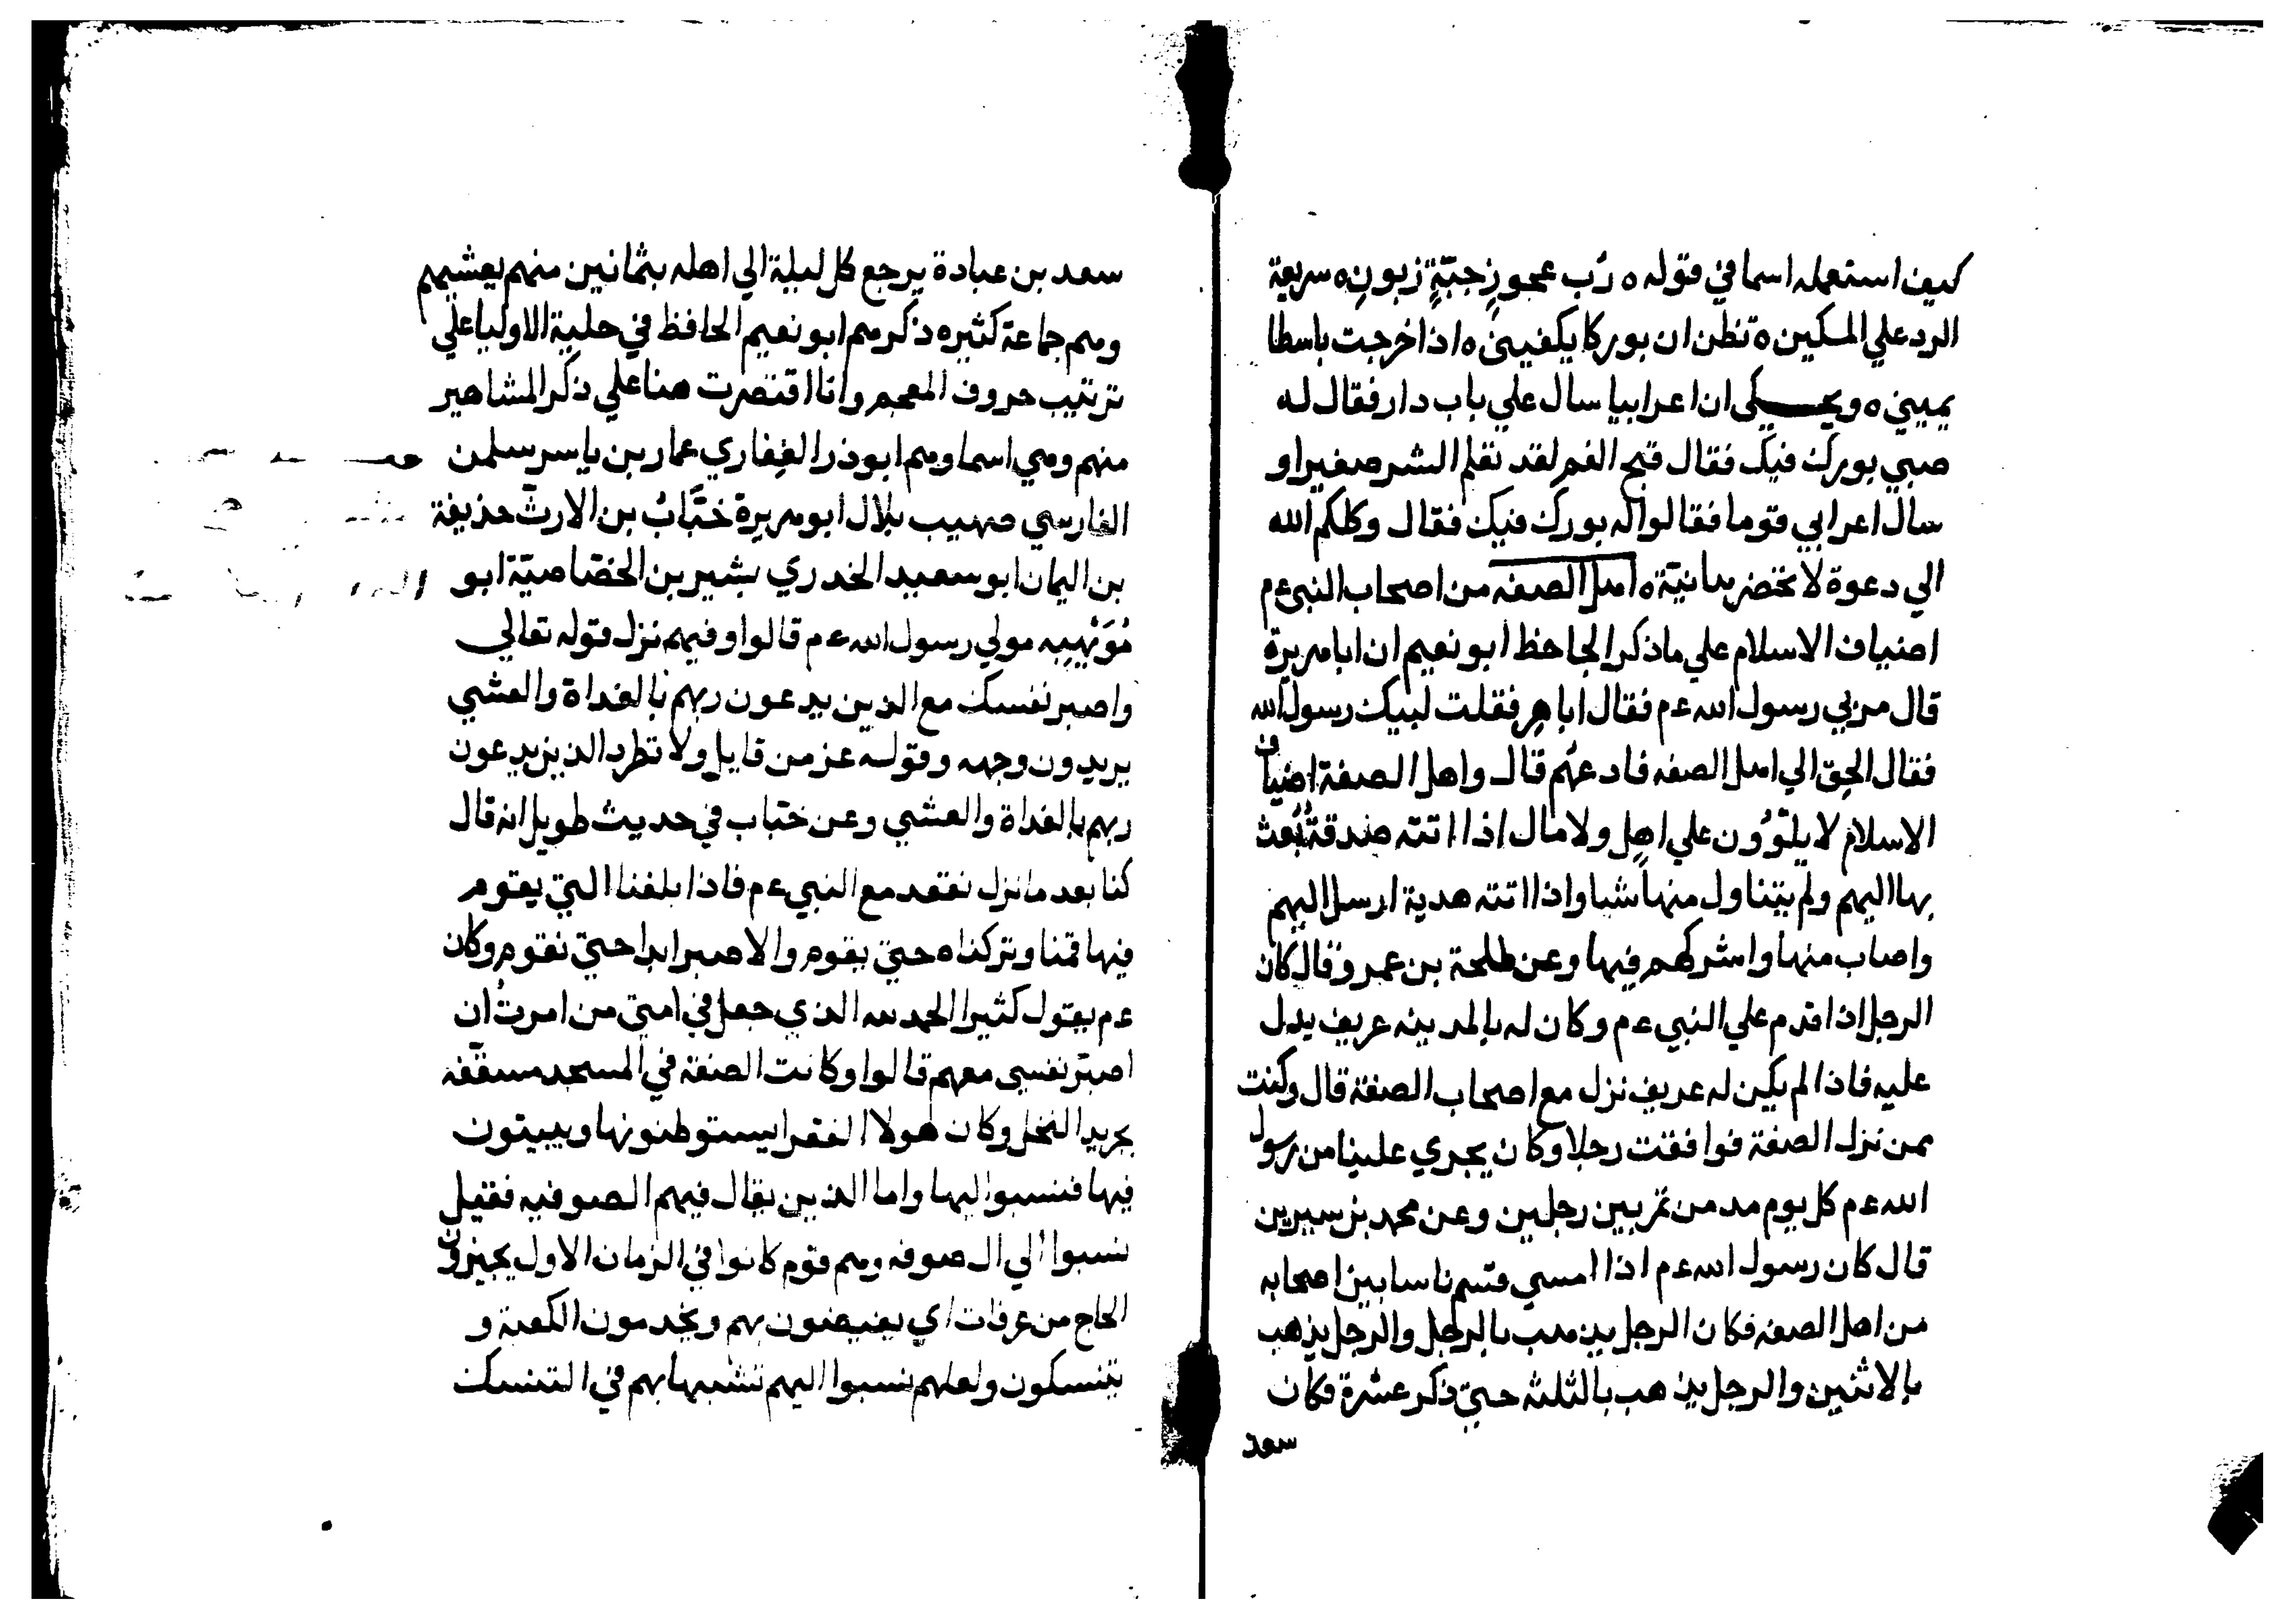 كيف استعمله اسما في قوله ه رُب عجوزٍ جبّةٍ زبونٍ ه سريعة
الرد علي المسكين ه تظن ان بوركا يكفيني ه اذا خرجت باسطا
يميني ه ويحكي ان اعرابيا سال علي باب دار فقال له
صبي بورك فيك فقال قبح الفم لقد تعلم الشر صغيرا و
سال اعرابي قوما فقالوا له بورك فيك فقال وكلكم الله
الي دعوة لا تحضرها نيّة ه اهل الصفه من اصحاب النبي ءم
اضياف الاسلام علي ما ذكر الحاحظ ابو نعيم ان ابا هريرة
قال مر بي رسول الله ءم فقال ابا هر فقلت لبيك رسول الله
فقال الحق الي اهل الصفه فادعهم قال واهل الصفة اضياف
الاسلام لا يلوُون علي اهل ولا مال اذا اتته صدقةٌ بُعث
بها اليهم ولم يتناول منها شيا واذا اتته هدية ارسل اليهم
واصاب منها واشركهم فيها وعن طلحة بن عمرو قال كان
الرجل اذا قدم علي النبي ءم وكان له بالمدينه عريف يدل
عليه فاذا لم يكن له عريف نزل مع اصحاب الصفة قال وكنت
ممن نزل الصفة فوافقت رجلا وكان يجري علينا من رسول
الله ءم كل يوم مد من تمر بين رجلين وعن محمد بن سيرين
قال كان رسول الله ءم اذا امسي قسم ناسا بين اصحابه
من اهل الصفه فكان الرجل يذهب بالرجل والرجل يذهب
بالاثنين والرجل يذهب بالثلثه حتي ذكر عشرة فكان
سعد
سعد بن عبادة يرجع كل ليلة الي اهله بثمانين منهم يعشيهم
وهم جماعة كثيره ذكرهم ابو نعيم الحافظ في حلية الاوليا علي
ترتيب حروف المعجم وانا اقتصرت هنا علي ذكر المشاهير
منهم وهي اسماوهم ابو ذر الغِفاري عمار بن ياسر سلمن
الفارسي صهيب بلال ابو هريرة خبّابُ بن الارتّ حذيفة
بن اليمان ابو سعيد الخدري بشير بن الخصاصيّة ابو
مُوَيْهِبِه مولي رسول الله ءم قالوا وفيهم نزل قوله تعالي
واصبر نفسك مع الذين يدعون ربهم بالغداة والعشي
يريدون وجهه وقوله عز من قايل ولا تطرد الذين يدعون
ربهم بالغداة والعشي وعن خبّاب في حديث طويل انه قال
كنا بعد ما نزل نقعد مع النبي ءم فاذا بلغنا التي يقوم
فيها قمنا وتركناه حتي يقوم والا صبر ابدا حتي نقوم وكان
ءم يقول كثيرا الحمد لله الذي جعل في امتي من امرتُ ان
اصبّر نفسي معهم قالوا وكانت الصفة في المسجد مسقّفه
بجريد النخل وكان هولا الفقرا يستوطنونها ويبيتون
فيها فنسبوا اليها واما الذين يقال فيهم الصوفيه فقيل
نسبوا الي ال صوفه وهم قوم كانوا في الزمان الاول يجيزون
الحاج من عرفات اي يفيضون بهم ويخدمون الكعبة و
يتنسكون ولعلهم نسبوا اليهم تشبيها بهم في التنسك